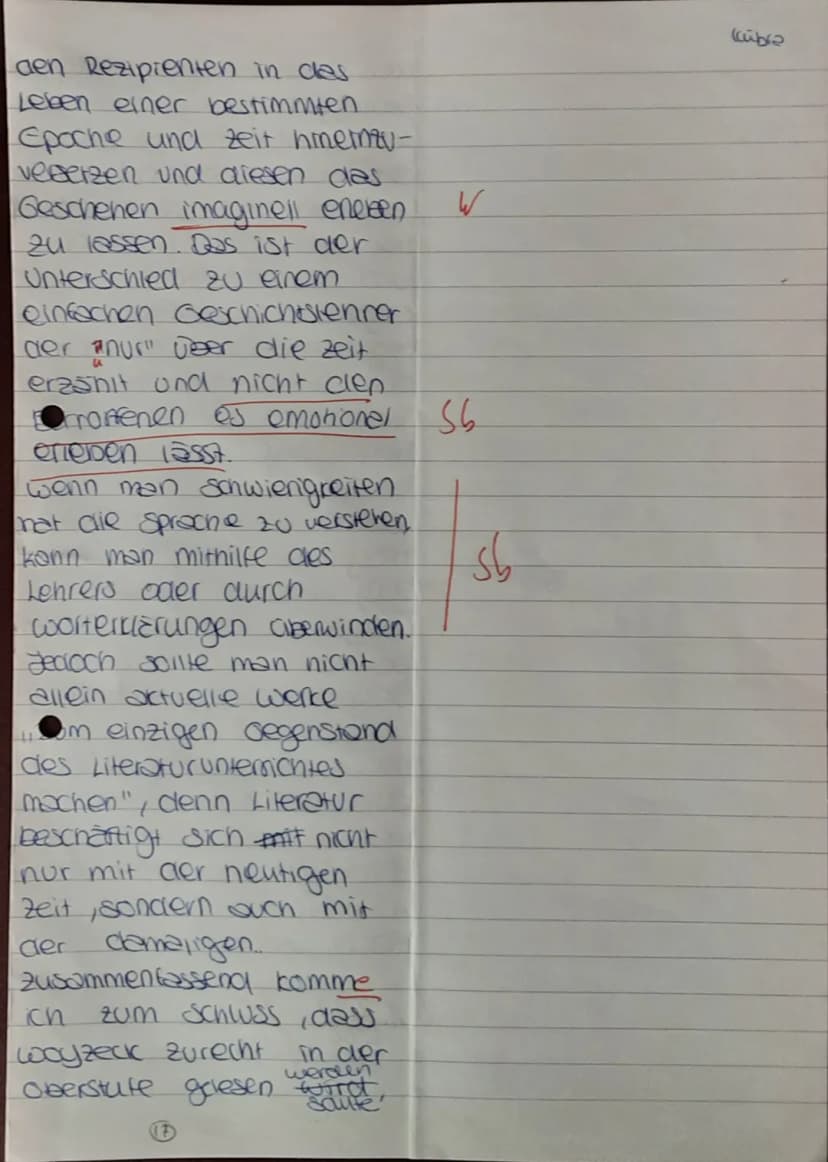 Kübra
den Rezipienten in das
Leben einer bestimmten
Epoche und Zeit hineinzu-
versetzen und diesen das
Geschehen imaginell erleben W
zu lassen. Das ist der
Unterschied zu einem
einfachen Geschichtslehrer
der „nur" über die Zeit
erzählt und nicht den
es emotionel Sb
erleben lässt.
Wenn man Schwierigkeiten
hat die Sprache zu verstehen,
kann man mithilfe des
Lehrers oder durch Sb
Worterklärungen überwinden.
Jedoch sollte man nicht
allein aktuelle Werke
einzigen Gegenstand
des Literaturunterrichtes
machen", denn Literatur
beschäftigt sich mit nicht
nur mit der heutigen
Zeit, sondern auch mit
der damaligen.
Zusammenfassend komme
ich zum Schluss, dass
Woyzeck zurecht in der
Oberstufe gelesen werden
wird
sollte.
17